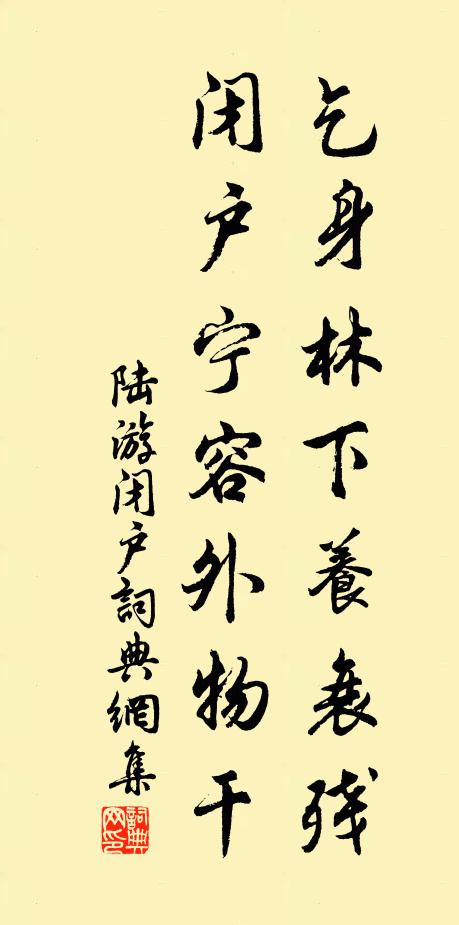 乞身林下養衰残
闭户宁容外物干
陆游闭户詞典網集
詞典網印